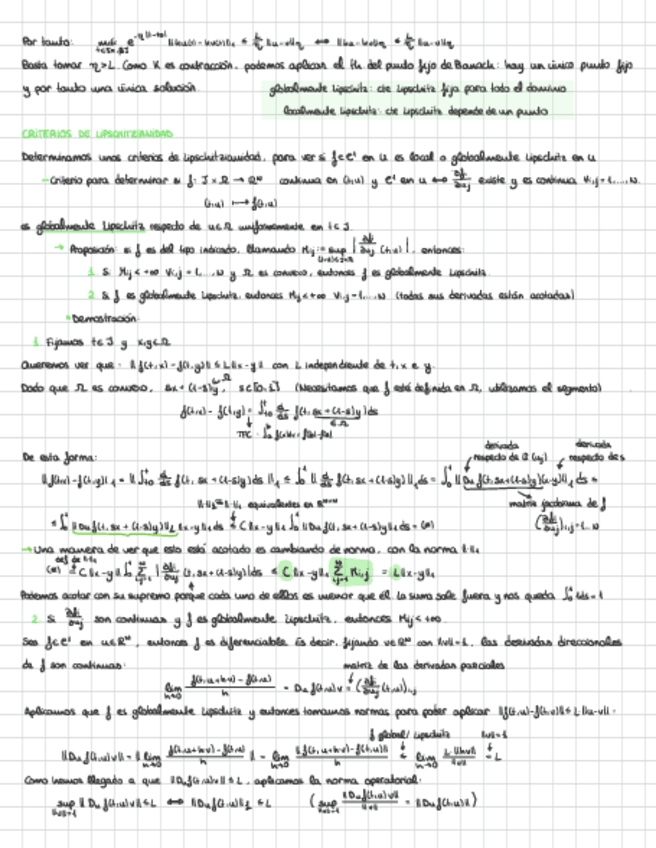 Por tanto: máx e^{-η|t-t0|} ||Ku(t)-Kv(t)||₁ ≤ L/η ||u-v||η ⟺ ||Ku-Kv||η ≤ L/η ||u-v||η
Basta tomar η>L. Como K es contracción, podemos aplicar el th. del punto fijo de Banach: hay un único punto fijo
y por tanto una única solución.
globalmente Lipschitz: cte Lipschitz fija para todo el dominio
localmente Lipschitz: cte Lipschitz depende de un punto
CRITERIOS DE LIPSCHITZIANIDAD
Determinamos unos criterios de Lipschitzianidad, para ver si f∈C¹ en u es local o globalmente Lipschitz en u
- Criterio para determinar si f: J×Ω → ℝᴺ continua en (t,u) y C¹ en u ⟺ ∂fi/∂uj existe y es continua ∀i,j=1,...,N.
(t,u) ↦ f(t,u)
es globalmente Lipschitz respecto de u∈Ω uniformemente en t∈J
→ Proposición: si f es del tipo indicado, llamando Mij := sup |∂fi/∂uj (t,u)|, entonces:
1. Si Mij < +∞ ∀i,j=1,...,N y Ω es convexo, entonces f es globalmente Lipschitz.
2. Si f es globalmente Lipschitz, entonces Mij < +∞ ∀i,j=1,...,N (todas sus derivadas están acotadas)
• Demostración:
1. Fijamos t∈J y x,y∈Ω
Queremos ver que: ||f(t,x)-f(t,y)|| ≤ L||x-y|| con L independiente de t, x e y.
Dado que Ω es convexo, sx+(1-s)y ∈Ω, s∈[0,1] (Necesitamos que f esté definida en Ω, utilizamos el segmento)
f(t,x)-f(t,y) = ∫₀¹ d/ds f(t, sx+(1-s)y)ds
∈Ω
De esta forma:
derivada respecto de Ω (uj)
derivada respecto de s
||f(t,x)-f(t,y)||₁ = ||∫₀¹ d/ds f(t, sx+(1-s)y)ds||₁ ≤ ∫₀¹ ||d/ds f(t, sx+(1-s)y)||₁ds = ∫₀¹ ||Du f(t,sx+(1-s)y)(x-y)||₁ds ≤
equivalentes en
matriz jacobiana de f
(∂fi/∂uj)i,j=1,...,N
≤ ∫₀¹ ||Du f(t, sx+(1-s)y)|| ||x-y||₁ds ≤ C||x-y||₁ ∫₀¹ ||Du f(t, sx+(1-s)y)||₁ds = (*)
→ Una manera de ver que esto está acotado es cambiando de norma, con la norma ||·||₁
(*) = C||x-y|| ∫₀¹ Σ |∂fi/∂uj (t, sx+(1-s)y)|ds ≤ C||x-y||₁ Σ Mi,j = L||x-y||₁
Podemos acotar con su supremo porque cada uno de ellos es menor que él. La suma sale fuera y nos queda ∫₀¹ 1ds=1
2. Si ∂fi/∂uj son continuas y f es globalmente Lipschitz, entonces Mij<+∞.
Sea f∈C¹ en u∈ℝᴺ, entonces f es diferenciable. Es decir, fijando v∈ℝᴺ con ||v||=1, las derivadas direccionales
de f son continuas:
matriz de las derivadas parciales
lim h→0 f(t,u+hv)-f(t,u) / h = Du f(t,u)v = (∂fi/∂uj (t,u))i,j
Aplicamos que f es globalmente Lipschitz y entonces tomamos normas para poder aplicar ||f(t,u)-f(t,v)|| ≤ L·||u-v||.
f global/ Lipschitz ||v||=1
||Du f(t,u)v|| = || lim h→0 f(t,u+hv)-f(t,u) / h || = lim h→0 ||f(t,u+hv)-f(t,u)|| / h ≤ lim h→0 L||hv|| / = L
Como hemos llegado a que ||Du f(t,u)v|| ≤ L, aplicamos la norma operatorial:
sup ||v||=1 ||Du f(t,u)v|| ≤ L ⟺ ||Du f(t,u)|| ≤ L ( sup ||Du f(t,u)v|| / ||v|| = ||Du f(t,u)|| )